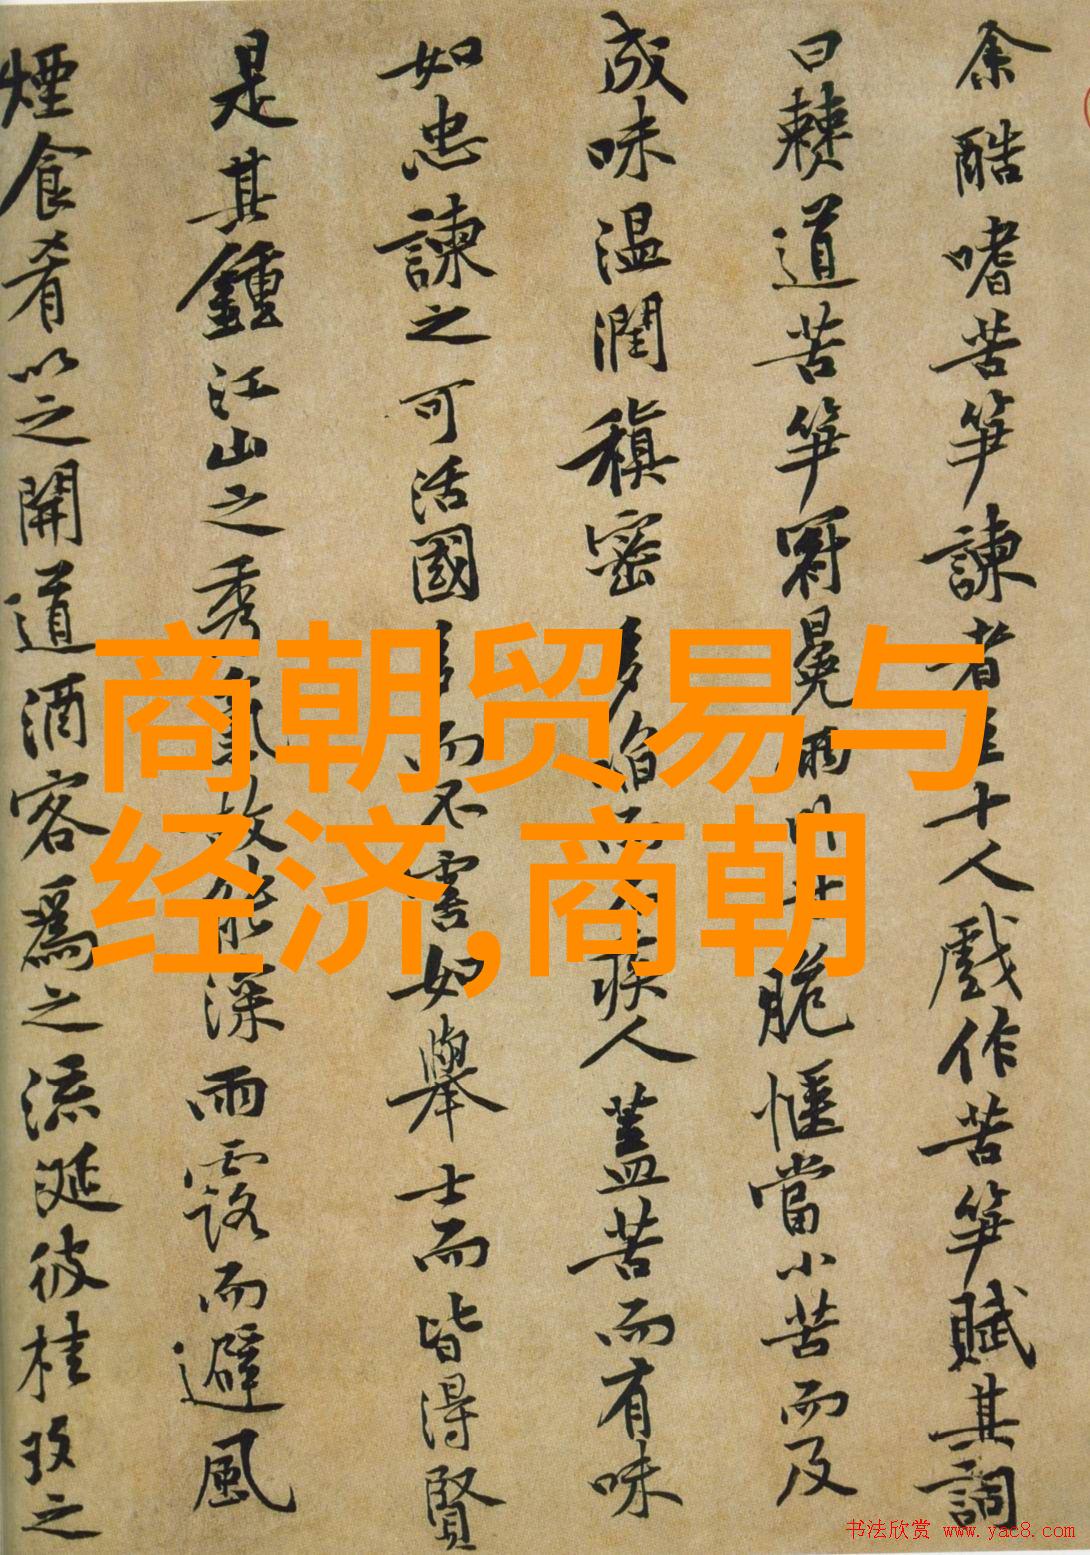 余酷嗜苦笋諫者至十人戲作苦笋賦其詞
曰僰道苦笋冠冕兩川甘脆愜當小苦而及
成味温潤稹密多啗而不疾人蓋苦而有味
如忠諫之可活國多而不害如舉士而皆得賢
是其鍾江山之秀氣故能深雨露而避風
煙食肴以之開道酒客爲之流涎彼桂玫之
商朝贸易与
经济,商朝
书法欣赏 www.yac8.com